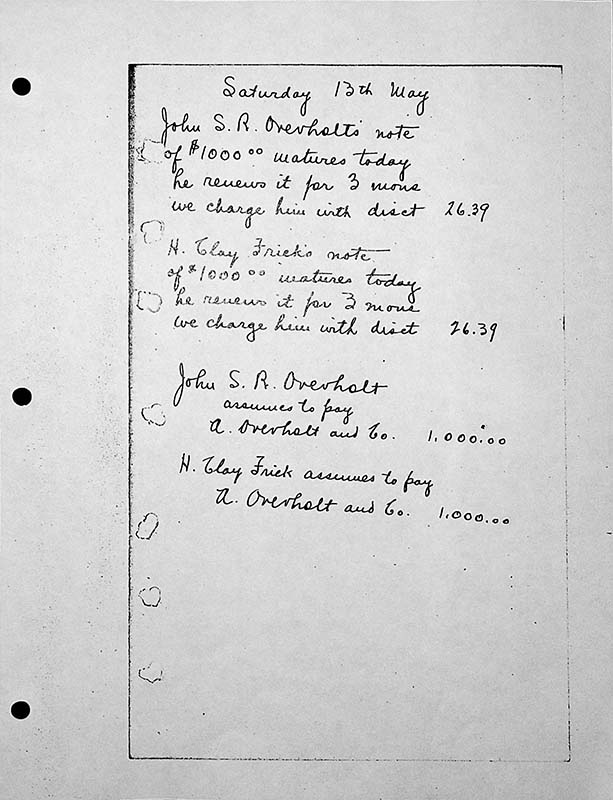 Saturday 13th May
John S. R. Overholt's note
of $1000 00 matures today
he renews it for 3 mons
we charge him with disct 26.39
H. Clay Frick's note
of $1000 00 matures today
he renews it for 3 mons
we charge him with disct 26.39
John S. R. Overholt
assumes to pay
A. Overholt and Co. 1,000.00
H. Clay Frick assumes to pay
A. Overholt and Co. 1,000.00